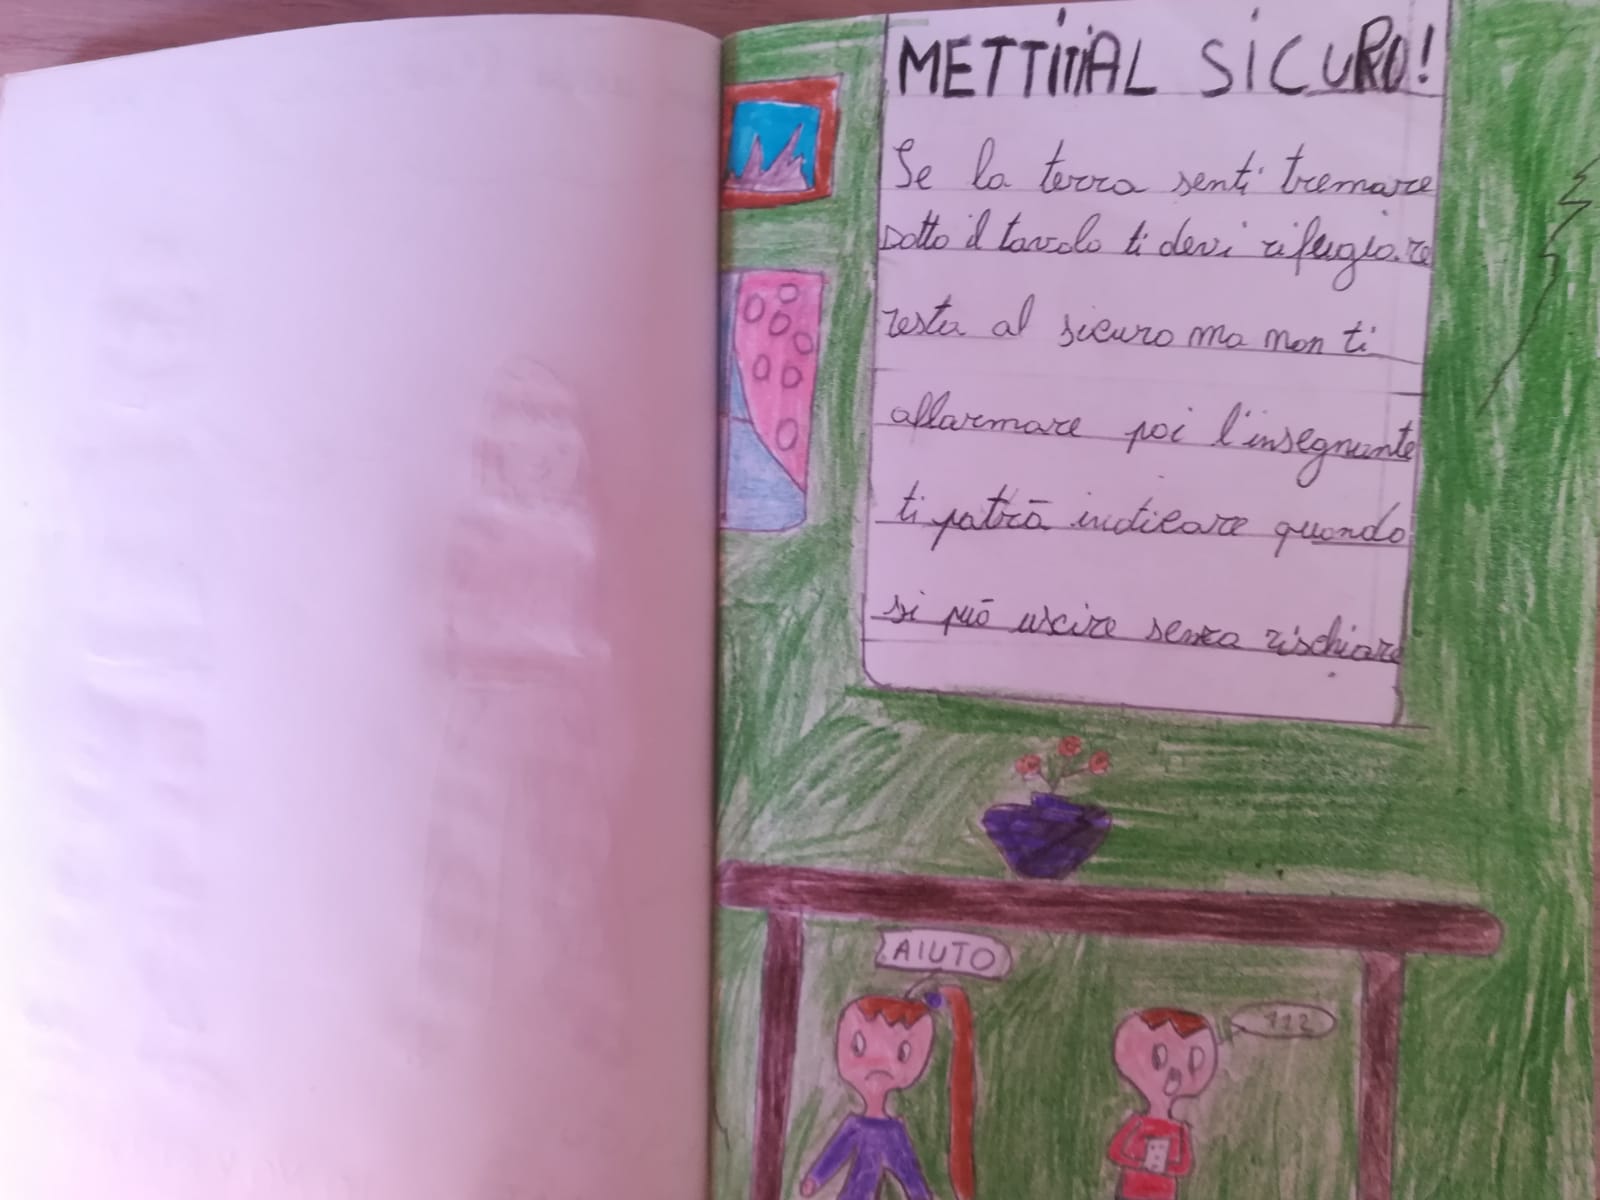 METTITI AL SICURO!
Se la terra senti tremare
sotto il tavolo ti devi rifugiare
resta al sicuro ma non ti
allarmare poi l'insegnante
ti potrà indicare quando
si può uscire senza rischiare
AIUTO
112